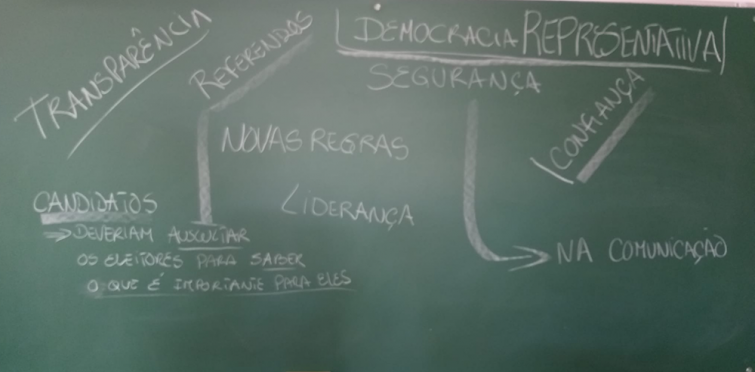 TRANSPARÊNCIA
REFERENDOS
DEMOCRACIA REPRESENTATIVA
SEGURANÇA
CONFIANÇA
NOVAS REGRAS
LIDERANÇA
CANDIDATOS
DEVERIAM AUSCULTAR
OS ELEITORES PARA SABER
O QUE É IMPORTANTE PARA ELES
NA COMUNICAÇÃO